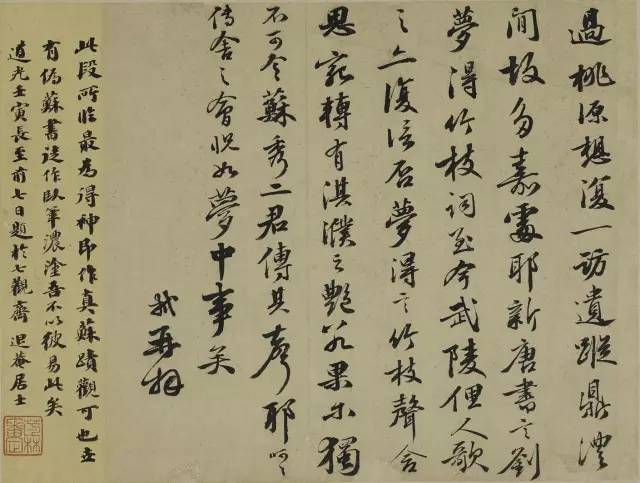 過桃源想復一訪遺蹤鼎澧
間故多嘉處耶新唐書言劉
夢得竹枝詞至今武陵俚人歌
之亦復信否夢得言竹枝聲含
思宛轉有淇濮之艷若果尓獨
不可令蘇秀二君傳其聲耶呵呵
傳舍之會怳如夢中事矣
軾再拜
此段所臨最為得神即作真蘇蹟觀可也世
有偽蘇書徒作臥筆濃塗吾不以彼易此矣
道光壬寅長至前七日題於七觀齋 退菴居士